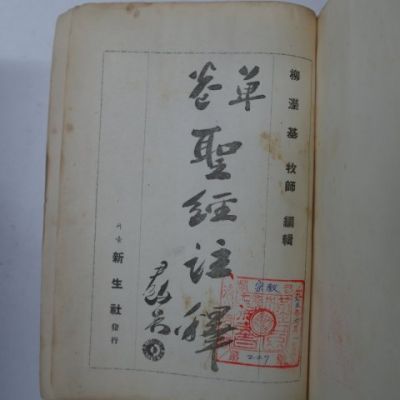 柳瀅基 牧師 編輯
單卷
聖經註釋
新生社 發行
宗敎
247